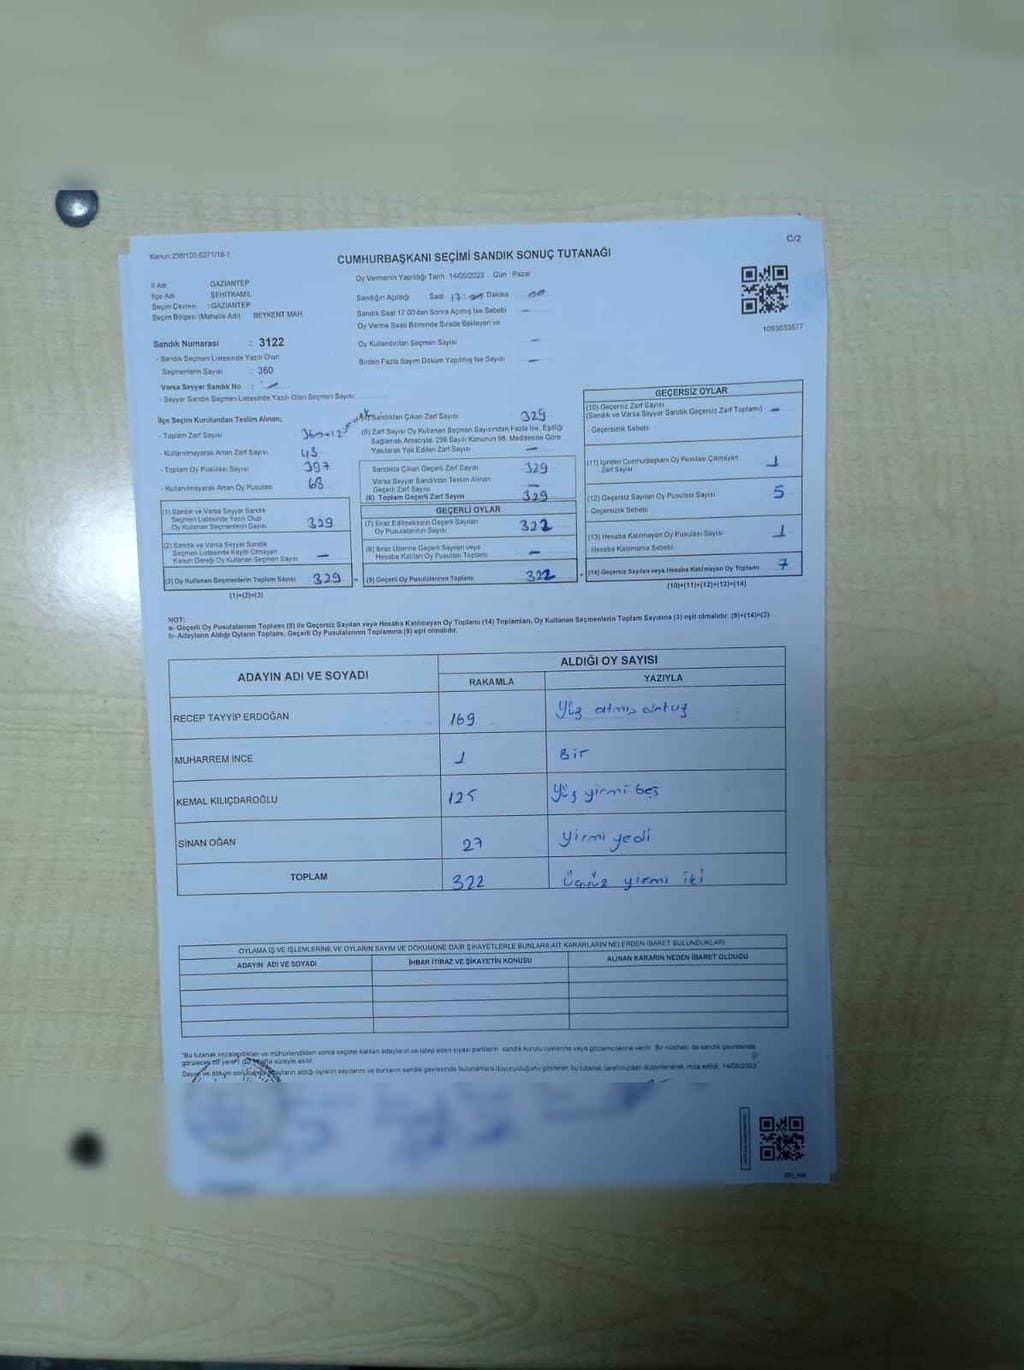 Kanun:298/100-6271/18-1
C/2
CUMHURBAŞKANI SEÇİMİ SANDIK SONUÇ TUTANAĞI
İl Adı GAZİANTEP
İlçe Adı ŞEHİTKAMİL
Seçim Çevresi : GAZİANTEP
Seçim Bölgesi (Mahalle Adı) BEYKENT MAH.
Oy Vermenin Yapıldığı Tarih 14/05/2023 Gün Pazar
Sandığın Açıldığı Saat 17:00 Dakika 00
Sandık Saat 17.00'den Sonra Açılmış İse Sebebi –
Oy Verme Saati Bitiminde Sırada Bekleyen ve
Oy Kullandırılan Seçmen Sayısı –
Birden Fazla Sayım Döküm Yapılmış İse Sayısı –
1093633577
Sandık Numarası : 3122
- Sandık Seçmen Listesinde Yazılı Olan
Seçmenlerin Sayısı : 360
Varsa Seyyar Sandık No : –
- Seyyar Sandık Seçmen Listesinde Yazılı Olan Seçmen Sayısı
İlçe Seçim Kurulundan Teslim Alınan;
- Toplam Zarf Sayısı
- Kullanılmayarak Artan Zarf Sayısı 43
- Toplam Oy Pusulası Sayısı 397
- Kullanılmayarak Artan Oy Pusulası 68
(1) Sandık ve Varsa Seyyar Sandık
Seçmen Listesinde Yazılı Olup
Oy Kullanan Seçmenlerin Sayısı 329
(2) Sandık ve Varsa Seyyar Sandık
Seçmen Listesinde Kaydı Olmayan
Kanun Gereği Oy Kullanan Seçmen Sayısı –
(3) Oy Kullanan Seçmenlerin Toplam Sayısı 329
(1)+(2)=(3)
(4) Sandıktan Çıkan Zarf Sayısı 329
(5) Zarf Sayısı Oy Kullanan Seçmen Sayısından Fazla İse, Eşitliği
Sağlamak Amacıyla, 298 Sayılı Kanunun 98. Maddesine Göre
Yakılarak Yok Edilen Zarf Sayısı –
Sandıkta Çıkan Geçerli Zarf Sayısı 329
Varsa Seyyar Sandıktan Teslim Alınan
Geçerli Zarf Sayısı –
(6) Toplam Geçerli Zarf Sayısı 329
GEÇERLİ OYLAR
(7) İtiraz Edilmeksizin Geçerli Sayılan
Oy Pusulalarının Sayısı 322
(8) İtiraz Üzerine Geçerli Sayılan veya
Hesaba Katılan Oy Pusulası Toplamı –
(9) Geçerli Oy Pusulalarının Toplamı 322
GEÇERSİZ OYLAR
(10) Geçersiz Zarf Sayısı
(Sandık ve Varsa Seyyar Sandık Geçersiz Zarf Toplamı) –
- Geçersizlik Sebebi
(11) İçinden Cumhurbaşkanı Oy Pusulası Çıkmayan
Zarf Sayısı 1
(12) Geçersiz Sayılan Oy Pusulası Sayısı 5
- Geçersizlik Sebebi
(13) Hesaba Katılmayan Oy Pusulası Sayısı 1
- Hesaba Katılmama Sebebi
(14) Geçersiz Sayılan veya Hesaba Katılmayan Oy Toplamı 7
(10)+(11)+(12)+(13)=(14)
NOT:
a- Geçerli Oy Pusulalarının Toplamı (9) ile Geçersiz Sayılan veya Hesaba Katılmayan Oy Toplamı (14) Toplamları, Oy Kullanan Seçmenlerin Toplam Sayısına (3) eşit olmalıdır. (9)+(14)=(3)
b- Adayların Aldığı Oyların Toplamı, Geçerli Oy Pusulalarının Toplamına (9) eşit olmalıdır.
ADAYIN ADI VE SOYADI
ALDIĞI OY SAYISI
RAKAMLA YAZIYLA
RECEP TAYYİP ERDOĞAN 169 Yüz atmış dokuz
MUHARREM İNCE 1 Bir
KEMAL KILIÇDAROĞLU 125 Yüz yirmi beş
SİNAN OĞAN 27 yirmi yedi
TOPLAM 322 Üçyüz yirmi iki
OYLAMA İŞ VE İŞLEMLERİNE VE OYLARIN SAYIM VE DÖKÜMÜNE DAİR ŞİKAYETLERLE BUNLARA AİT KARARLARIN NELERDEN İBARET BULUNDUKLARI
ADAYIN ADI VE SOYADI İHBAR İTİRAZ VE ŞİKAYETİN KONUSU ALINAN KARARIN NEDEN İBARET OLDUĞU